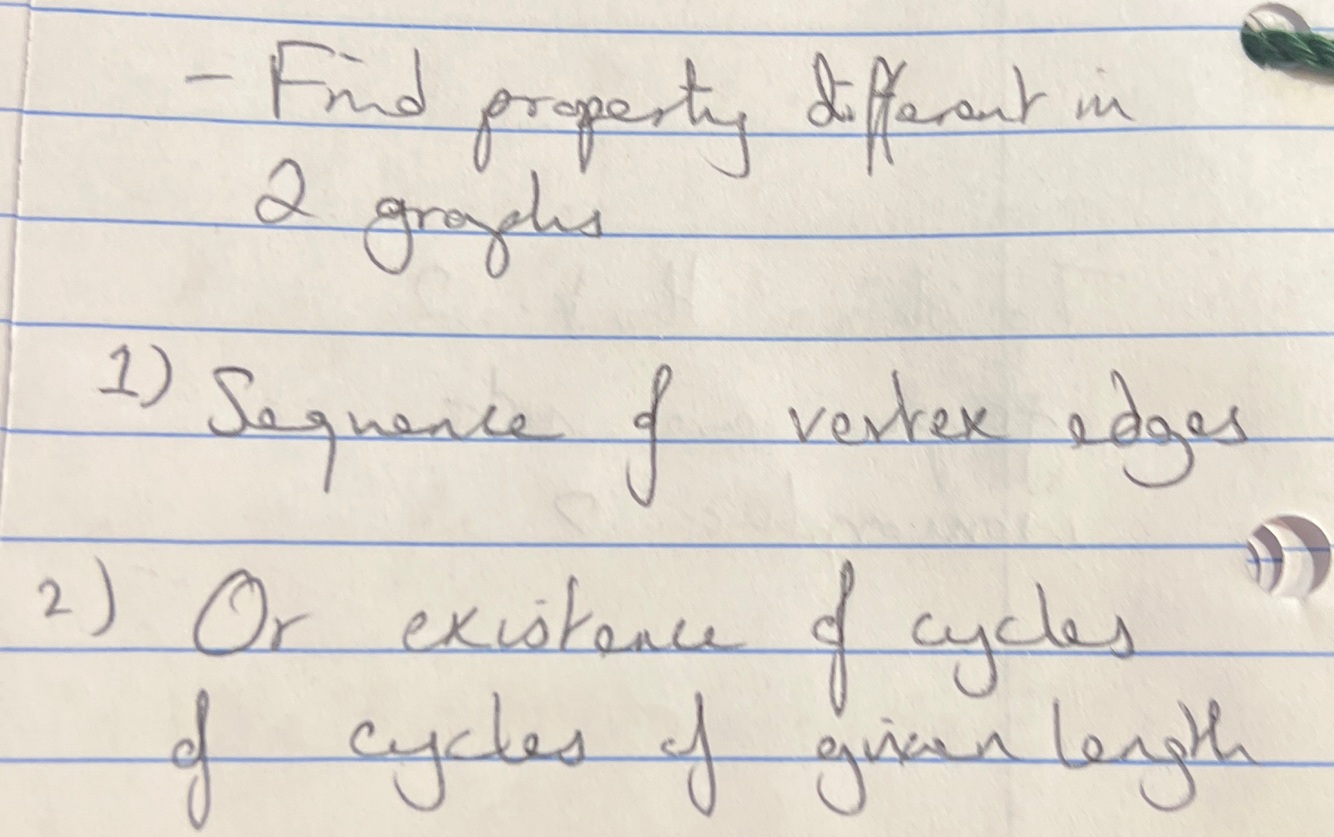 - Find property different in
2 graphs
1) Sequence of vertex edges
2) Or existence of cycles
of cycles of given length